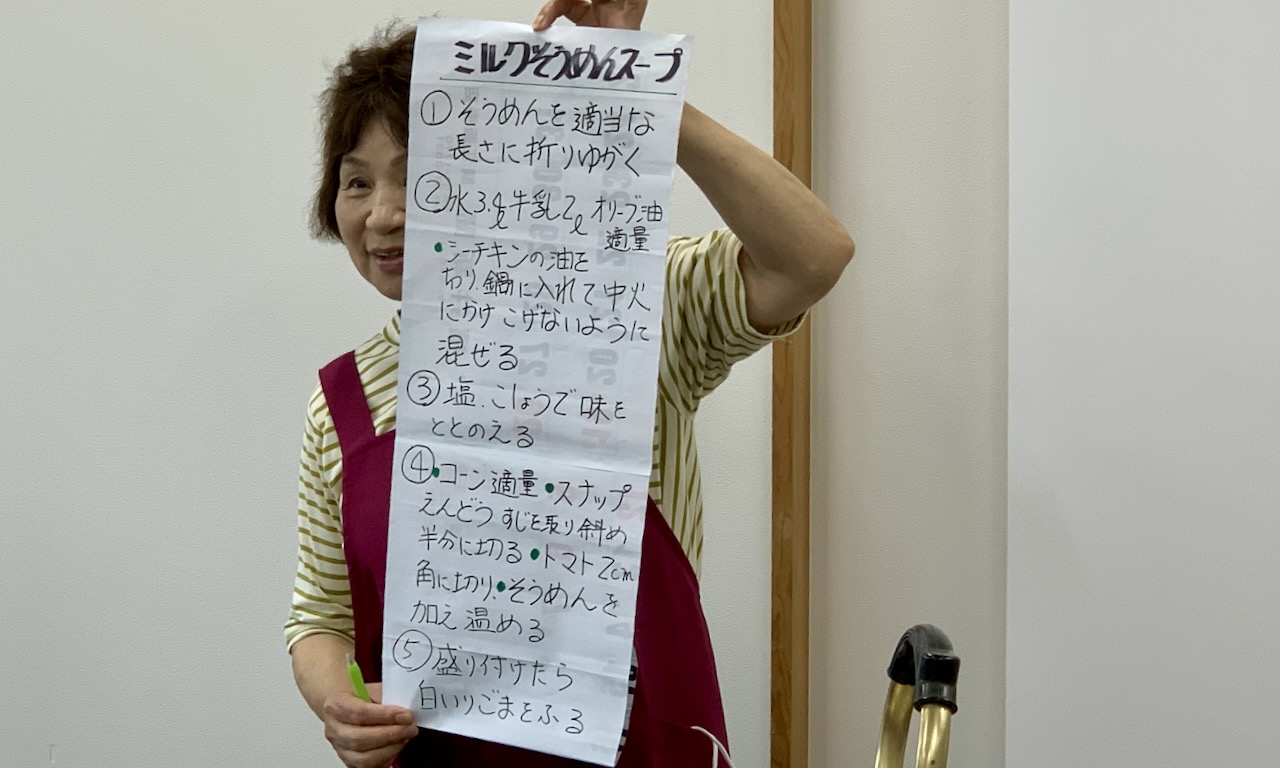 ミルクそうめんスープ
① そうめんを適当な
長さに折りゆがく
② 水3.ℓ牛乳2ℓ オリーブ油
適量
・シーチキンの油を
きり、鍋に入れて中火
にかけこげないように
混ぜる
③ 塩、こしょうで味を
ととのえる
④ ・コーン適量 ・スナップ
えんどうすじを取り斜め
半分に切る ・トマト2cm
角に切り、・そうめんを
加え温める
⑤ 盛り付けたら
白いりごまをふる